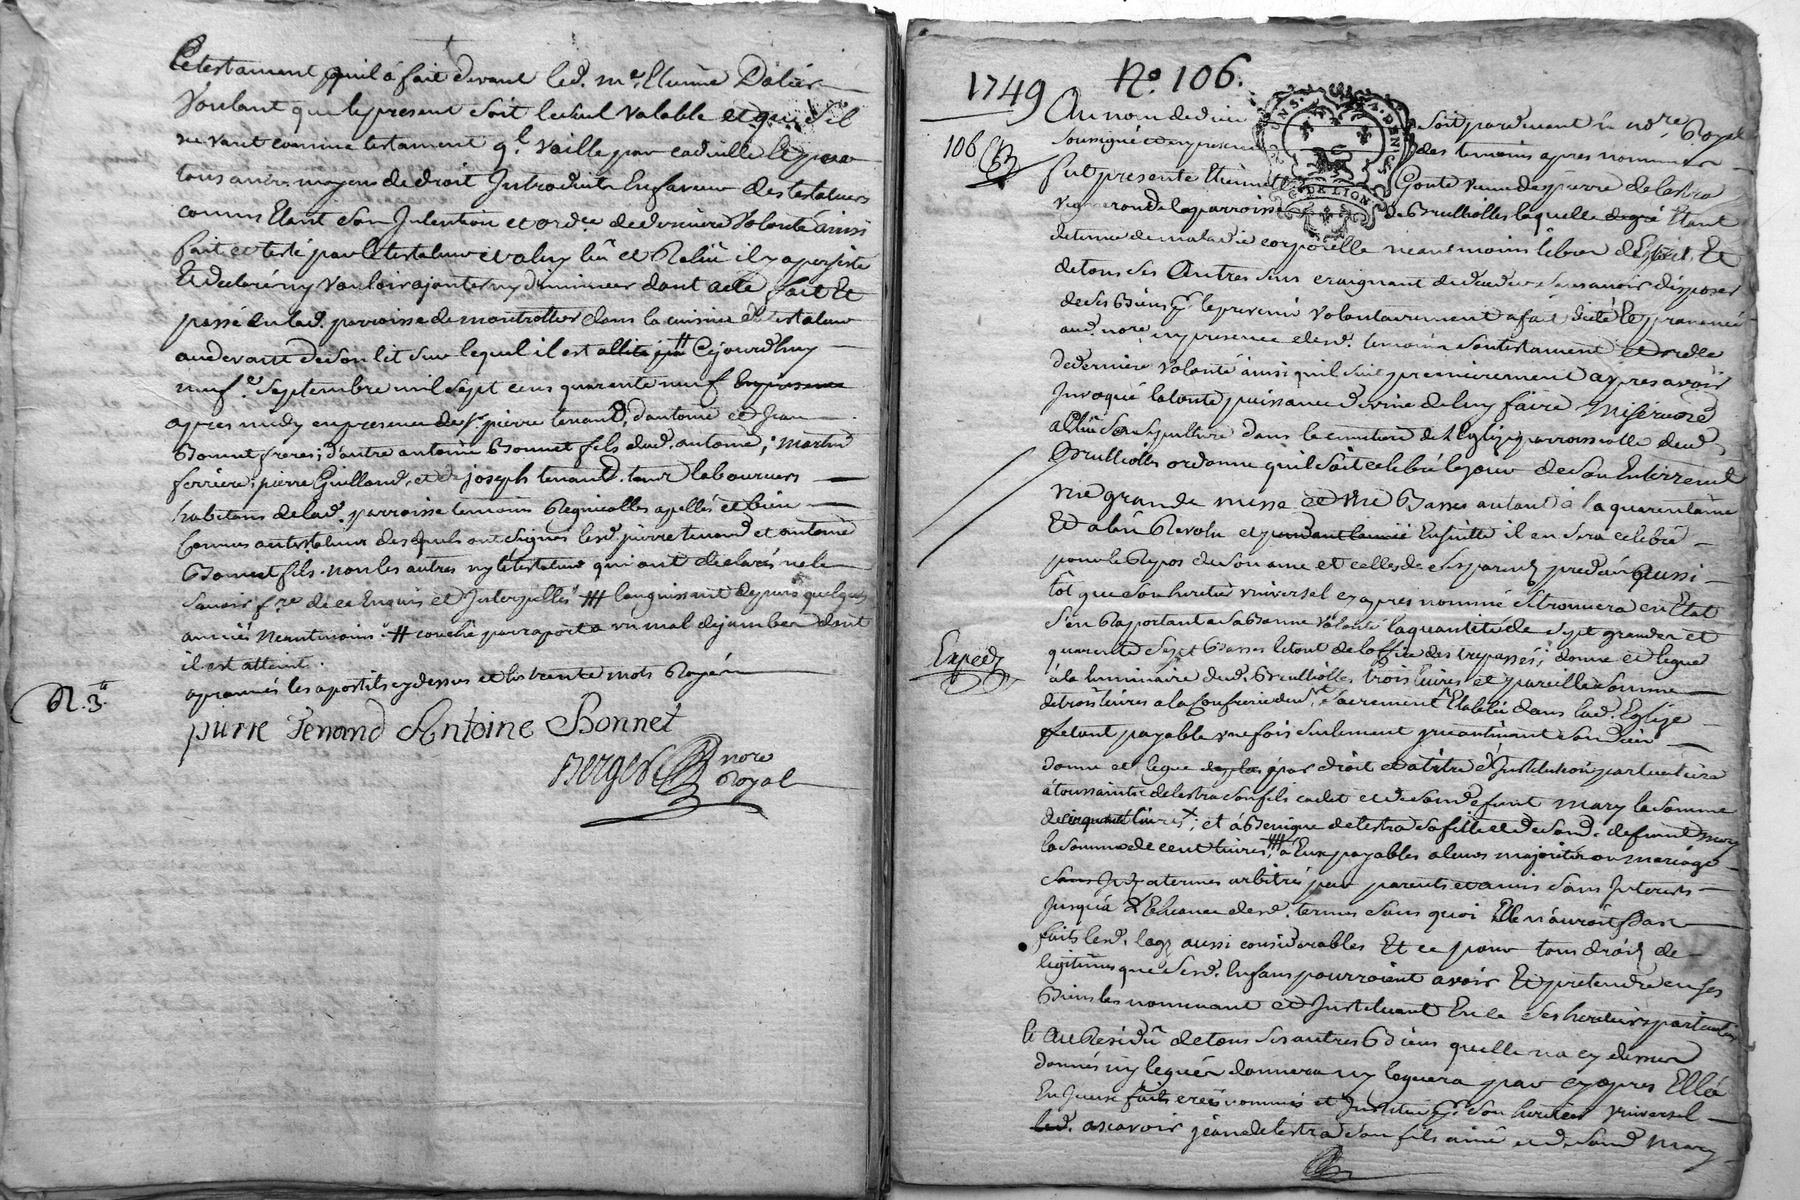 Le testament quil a fait devant led. me. Etienne Dalier
voulant que le present soit le seul valable et que sil
ne vaut comme testament ql. vaille par codicille et par
tous autres moyens de droit introduits en faveur des testateurs
comme etant son intention et ordce. de derniere volonté ainsi
fait et testé par le testateur et a luy lû et relû il y a persisté
Et declaré ny vouloir ajouter ny diminuer dont acte fait Et
passé en lad. parroisse de montrottier dans la cuisine du testateur
au devant de son lit sur lequel il est allité # Cejourdhuy
neuf. septembre mil sept cens quarente neuf en presence
apres midy en presence de sr. pierre tenand, d'antoine et Jean
Bonnet freres; d'autre antoine Bonnet fils dud. antoine; martin
ferriere; pierre Guilland, et de joseph tenand. tous laboureurs
habitans de lad. parroisse temoins Regnicolles apellés et bien
connus au testateur desquels ont signés lesd. pierre tenand et antoine
Bonnet fils. non les autres ny le testateur qui ont declarés ne le
savoir fre. de ce Enquis et Interpellés # languissant depuis quelques
années neantmoins # couché par raport a un mal de jambes dont
il est atteint.
aprouvés les apostils cy dessus et les trente mots Royés
R. 3tt
pierre Tenand Antoine Bonnet
Berger nore
Royal
1749 No. 106.
Au nom de dieu soit pardevant le nore. Royal
106 soussigné et en presence des temoins apres nommés
fut presente Etiennette Gonte veuve de pierre delestra
vigneron de la parroisse de Brulliolles laquelle de gré Etant
detenue de maladie corporelle neanmoins libre d'Esprit Et
de tous ses Autres sens craignant de deceder sans avoir disposé
de ses Biens pr. le prevenir volontairement a fait dicté Et prononcé
aud. nore. en presence desd. temoins son testament et ordce
de derniere volonté ainsi quil suit premierement apres avoir
Invoqué la toute puissance divine de luy faire misericorde
a Elû sa sepulture dans le cimetiere de l'Eglise parroissialle dud.
Brulliolles ordonne quil soit celebré le jour de son Enterrement
une grande messe et une Basse autant à la quarentaine
Et a l'an Revolu et pendant l'année Ensuitte il en sera celebré
pour le Repos de son ame et celles de ses parens predecedés aussi
tôt que son heritier universel cy apres nommé se trouvera en Etat
s'en Raportant a sa Bonne volonté la quantité de sept grandes et
quarente sept Basses le tout de l'office des trepassés; donne et legue
Exped.
à la luminaire dud. Brulliolles trois livres et pareille somme
de trois livres a la Confrerie du st. sacrement Etablie dans lad. Eglise
le tout payable une fois seulement
donne et legue par droit et a titre d'Institution particuliere
à toussainte delestra son fils cadet et de sond. defunt mary la somme
de cinquante livres; et à Benigne delestra sa fille et de sond. defunt mary
la somme de cent livres, # à Eux payables a leurs majorités ou mariage
a termes arbitrés par parents et amis sans Interests
jusqu'à l'Echeance desd. termes sans quoi Elle n'auroit pas
faits lesd. legs aussi considerables Et ce pour tous droits de
legitimes que sesd. Enfans pourroient avoir Et pretendre en ses
Biens les nommant et Instituant En ce ses heritiers particuliers
Et Au Residû de tous ses autres Biens quelle na cy dessus
donnés ny legués donnera ny leguera par cy apres Elle a
faits créé nommé et Institué pr. son heritier universel
led. ascavoir jean delestra son fils ainé et de sond. mary